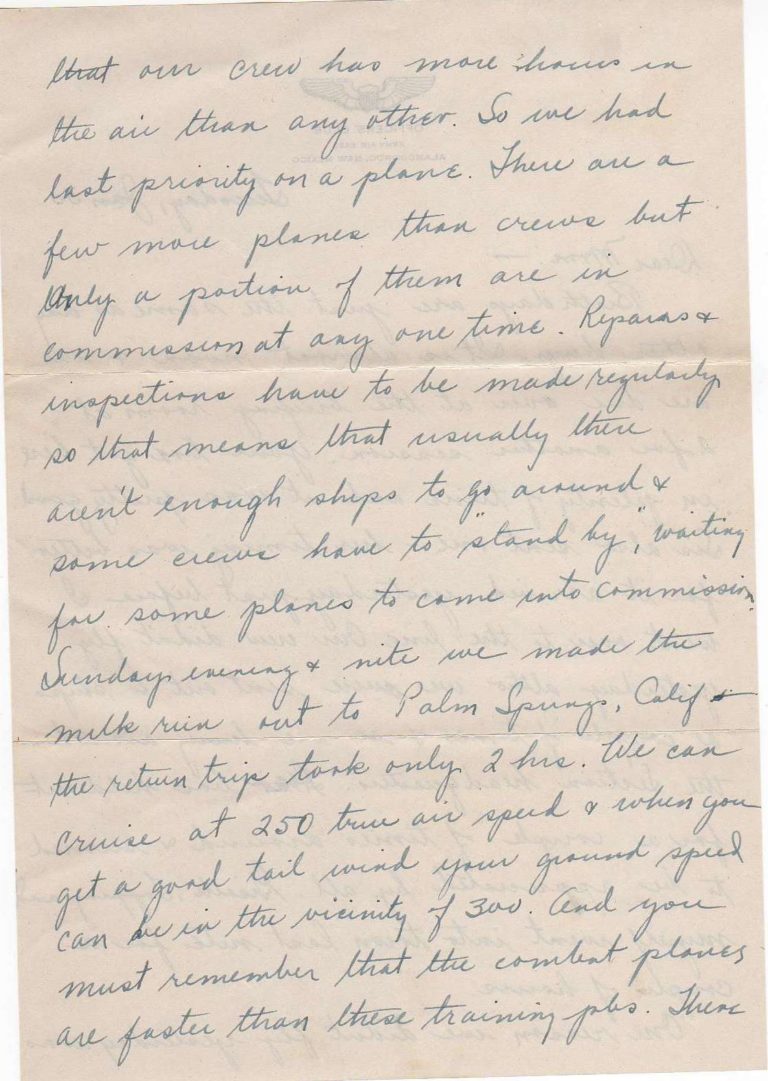 that our crew has more hours in
the air than any other. So we had
last priority on a plane. There are a
few more planes than crews but
only a portion of them are in
commission at any one time. Repairs &
inspections have to be made regularly
so that means that usually there
aren't enough ships to go around &
some crews have to "stand by", waiting
for some planes to come into commission.
Sunday evening & nite we made the
milk run out to Palm Springs, Calif &
the return trip took only 2 hrs. We can
cruise at 250 true air speed & when you
get a good tail wind your ground speed
can be in the vicinity of 300. And you
must remember that the combat planes
are faster than these training jobs. There